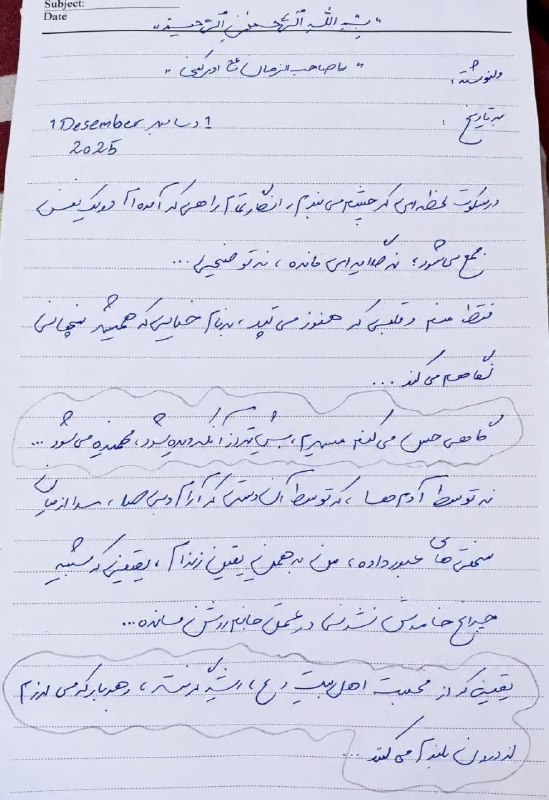 Subject:
Date
"بسم الله الرحمن الرحیم"
"یا صاحب الزمان عج ادرکنی"
دلنوشته:
به تاریخ:
1 دسامبر 1Desember
2025
در سکوت لحظه‌ای که چشم می‌بندم، انگار تمام راهی که آمده‌ام در یک نفس
جمع می‌شود؛ نه گلایه‌ای مانده، نه توضیحی...
فقط منم و قلبی که هنوز می‌تپد، به نام خدایی که همیشه پنهانی
نگاهم می‌کند...
گاهی حس می‌کنم مسیرم، بیش‌تر از آنکه دیده شود، فهمیده می‌شود...
نه توسط آدم‌ها، که توسط آن دستی که آرام و بی‌صدا، مرا از میان
سختی‌های عبور داده، من به همین یقین زنده‌ام، یقینی که شبیه
چراغ خاموش نشدنی در عمق جانم روشن مانده...
یقینی که از محبت اهل بیت (ع)، ریشه گرفته، و هربار که می‌لرزم
از درون بلندم می‌کند...